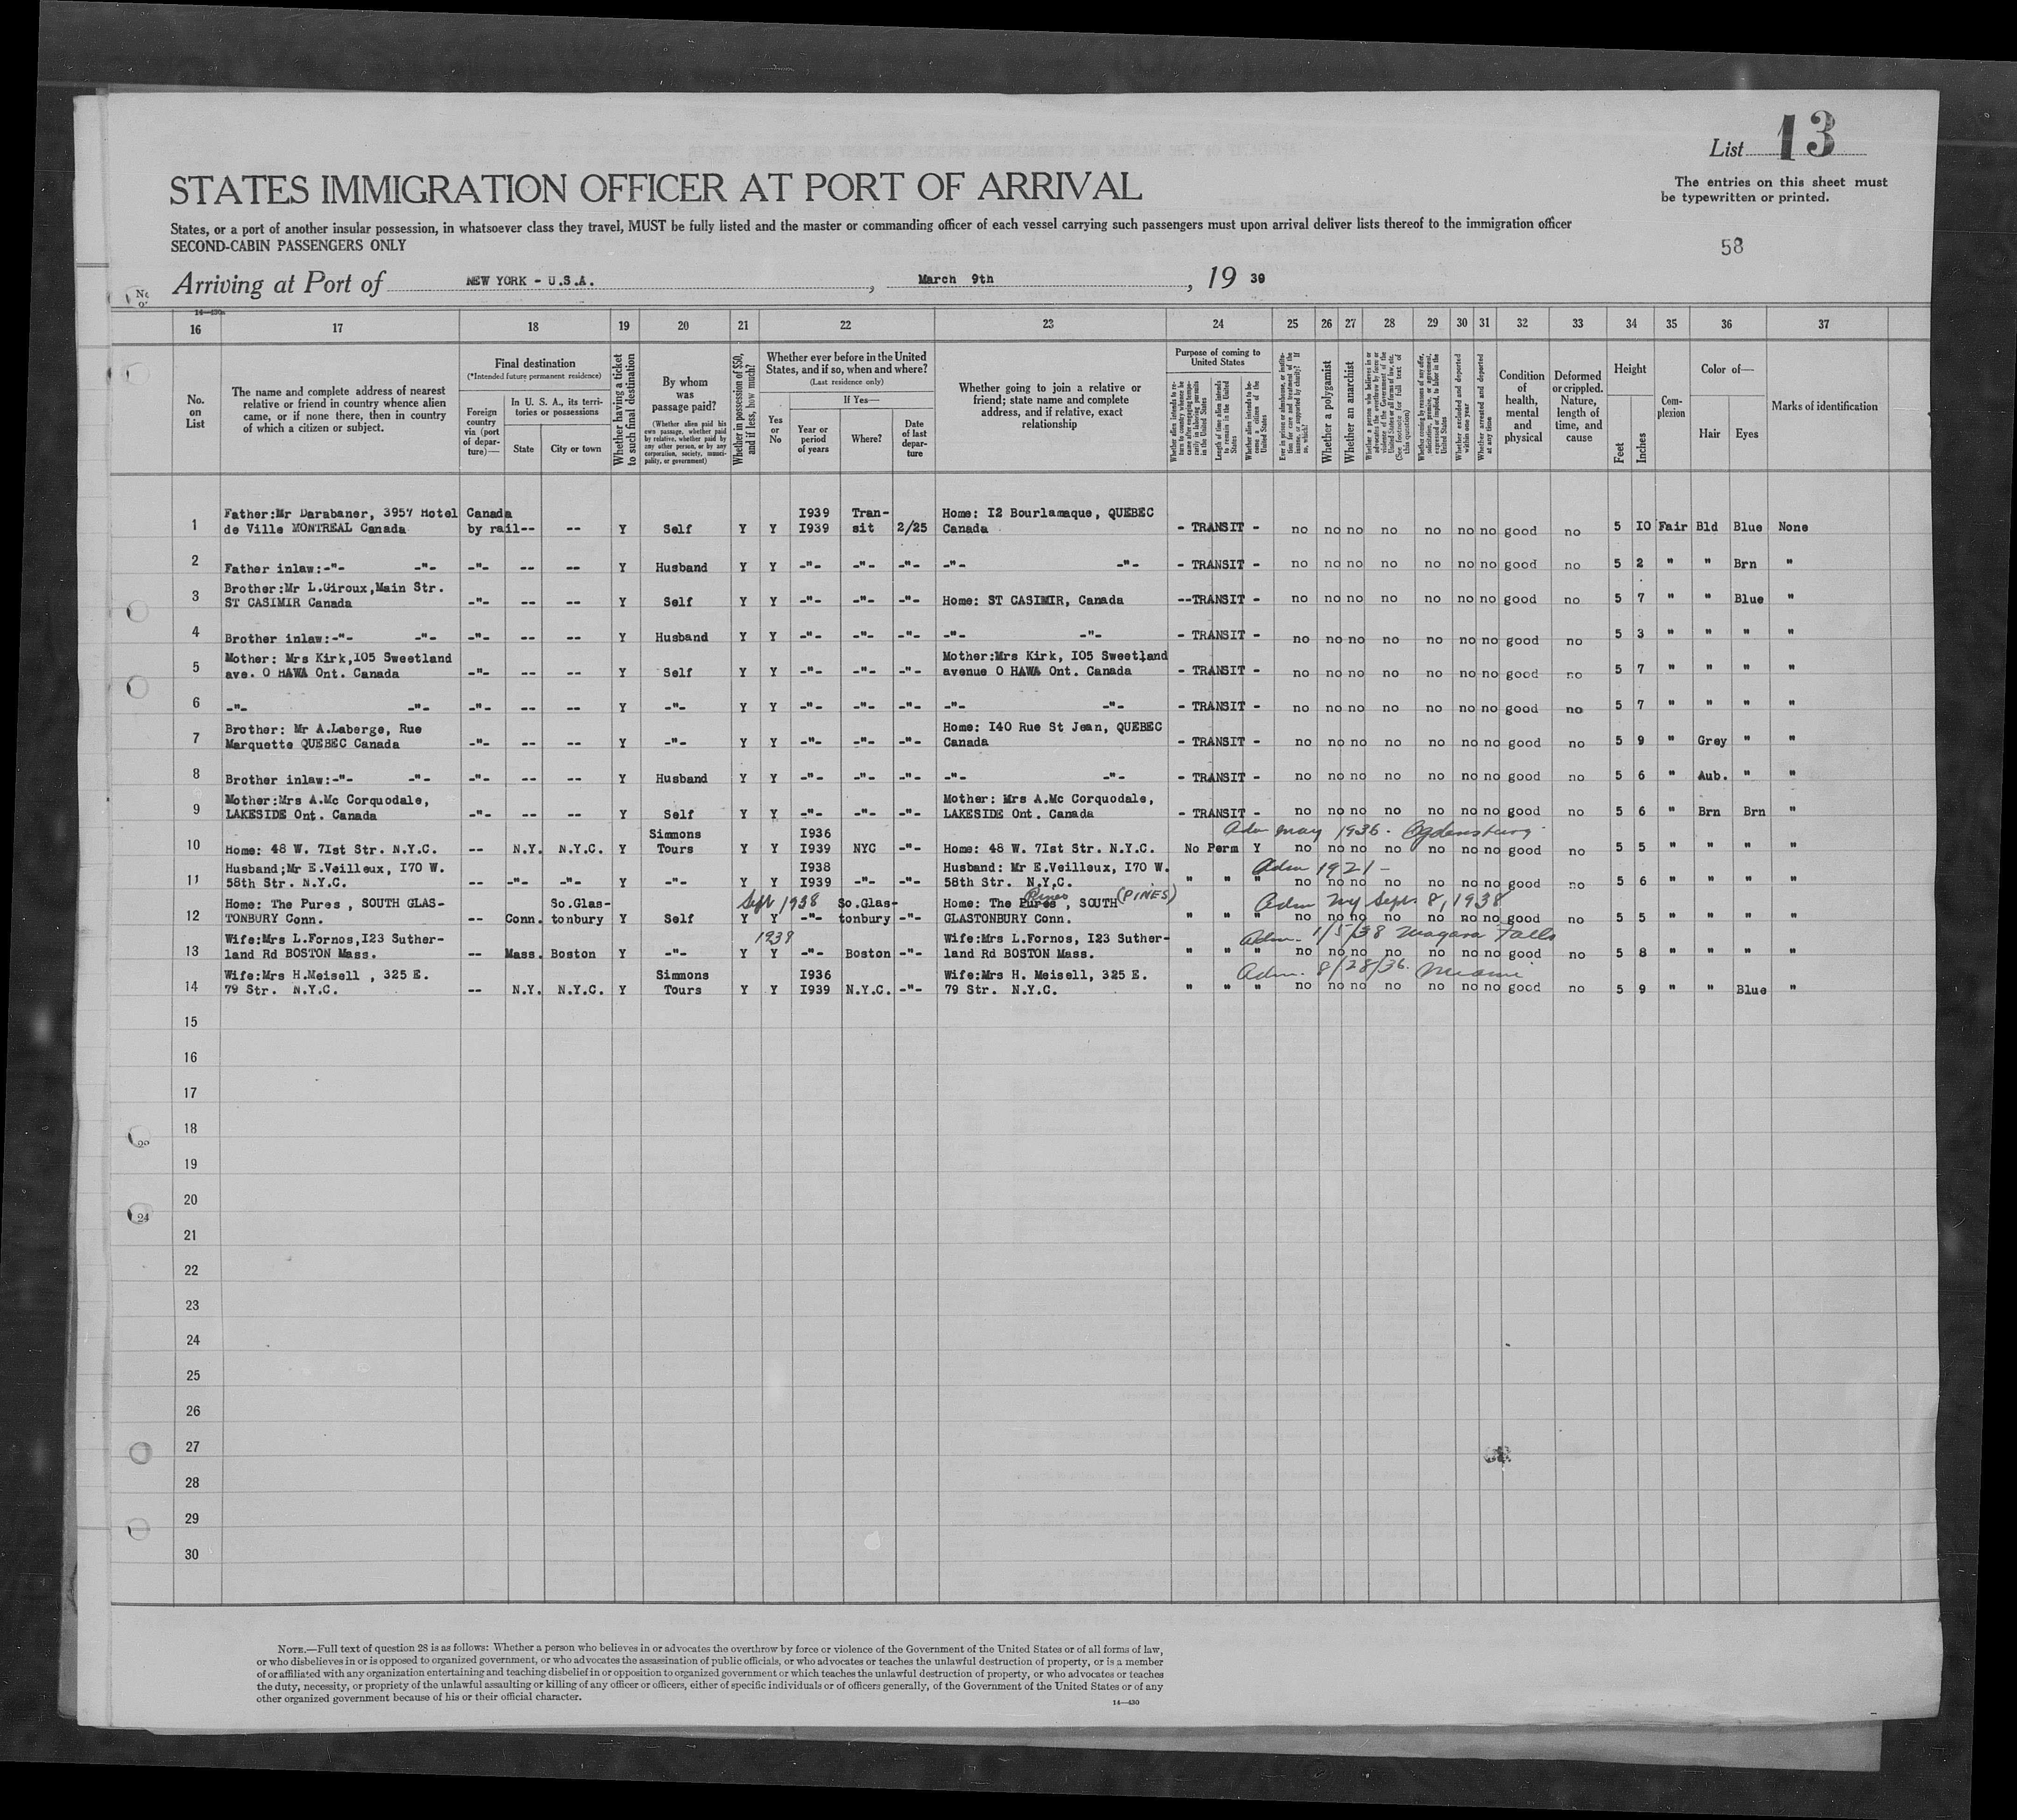 List 13
The entries on this sheet must
be typewritten or printed.
STATES IMMIGRATION OFFICER AT PORT OF ARRIVAL
States, or a port of another insular possession, in whatsoever class they travel, MUST be fully listed and the master or commanding officer of each vessel carrying such passengers must upon arrival deliver lists thereof to the immigration officer
SECOND-CABIN PASSENGERS ONLY
58
Arriving at Port of NEW YORK - U.S.A. , March 9th , 19 39
16 17 18 19 20 21 22 23 24 25 26 27 28 29 30 31 32 33 34 35 36 37
No. on List
The name and complete address of nearest relative or friend in country whence alien came, or if none there, then in country of which a citizen or subject.
Final destination
(*Intended future permanent residence)
Foreign country via (port of departure)—
In U. S. A., its territories or possessions
State
City or town
Whether having a ticket to such final destination
By whom was passage paid?
(Whether alien paid his own passage, whether paid by relative, whether paid by any other person, or by any corporation, society, municipality, or government)
Whether in possession of $50, and if less, how much?
Whether ever before in the United States, and if so, when and where?
(Last residence only)
Yes or No
If Yes—
Year or period of years
Where?
Date of last departure
Whether going to join a relative or friend; state name and complete address, and if relative, exact relationship
Purpose of coming to United States
Length of time alien intends to remain in the United States
Whether alien intends to become a citizen of the United States
Whether a polygamist
Whether an anarchist
Whether excluded and deported within one year
Whether arrested and deported at any time
Condition of health, mental and physical
Deformed or crippled. Nature, length of time, and cause
Height
Feet
Inches
Complexion
Color of—
Hair
Eyes
Marks of identification
1 Father:Mr Darabaner, 3957 Hotel de Ville MONTREAL Canada Canada by rail-- -- Y Self Y Y I939 I939 Transit 2/25 Home: I2 Bourlamaque, QUEBEC Canada - TRANSIT - no no no no no no no good no 5 IO Fair Bld Blue None
2 Father inlaw:-"- -"- -"- -- -- Y Husband Y Y -"- -"- -"- -"- -"- - TRANSIT - no no no no no no no good no 5 2 " " Brn "
3 Brother:Mr L.Giroux,Main Str. ST CASIMIR Canada -"- -- -- Y Self Y Y -"- -"- -"- Home: ST CASIMIR, Canada --TRANSIT - no no no no no no no good no 5 7 " " Blue "
4 Brother inlaw:-"- -"- -"- -- -- Y Husband Y Y -"- -"- -"- -"- -"- - TRANSIT - no no no no no no no good no 5 3 " " " "
5 Mother: Mrs Kirk,I05 Sweetland ave. O HAWA Ont. Canada -"- -- -- Y Self Y Y -"- -"- -"- Mother:Mrs Kirk, I05 Sweetland avenue O HAWA Ont. Canada - TRANSIT - no no no no no no no good no 5 7 " " " "
6 -"- -"- -"- -- -- Y -"- Y Y -"- -"- -"- -"- -"- - TRANSIT - no no no no no no no good no 5 7 " " " "
7 Brother: Mr A.Laberge, Rue Marquette QUEBEC Canada -"- -- -- Y -"- Y Y -"- -"- -"- Home: I40 Rue St Jean, QUEBEC Canada - TRANSIT - no no no no no no no good no 5 9 " Grey " "
8 Brother inlaw:-"- -"- -"- -- -- Y Husband Y Y -"- -"- -"- -"- -"- - TRANSIT - no no no no no no no good no 5 6 " Aub. " "
9 Mother:Mrs A.Mc Corquodale, LAKESIDE Ont. Canada -"- -- -- Y Self Y Y -"- -"- -"- Mother: Mrs A.Mc Corquodale, LAKESIDE Ont. Canada - TRANSIT - no no no no no no no good no 5 6 " Brn Brn "
Adm may 1936. Ogdensburg
10 Home: 48 W. 7Ist Str. N.Y.C. -- N.Y. N.Y.C. Y Simmons Tours Y Y I936 I939 NYC -"- Home: 48 W. 7Ist Str. N.Y.C. No Perm Y no no no no no no no good no 5 5 " " " "
Adm 1921 -
11 Husband;Mr E.Veilleux, I70 W. 58th Str. N.Y.C. -- -"- -"- Y -"- Y Y I938 I939 -"- -"- Husband: Mr E.Veilleux, I70 W. 58th Str. N.Y.C. " " " no no no no no no no good no 5 6 " " " "
Sept 1938 Pines (PINES) Adm NY Sept 8, 1938
12 Home: The Pures , SOUTH GLASTONBURY Conn. -- Conn. So.Glastonbury Y Self Y Y -"- So.Glastonbury -"- Home: The Pures , SOUTH GLASTONBURY Conn. " " " no no no no no no no good no 5 5 " " " "
1939 Adm. 1/5/38 Niagara Falls
13 Wife:Mrs L.Fornos,I23 Sutherland Rd BOSTON Mass. -- Mass. Boston Y -"- Y Y -"- Boston -"- Wife:Mrs L.Fornos, I23 Sutherland Rd BOSTON Mass. " " " no no no no no no no good no 5 8 " " " "
Adm. 8/28/36. Miami
14 Wife:Mrs H.Meisell , 325 E. 79 Str. N.Y.C. -- N.Y. N.Y.C. Y Simmons Tours Y Y I936 I939 N.Y.C. -"- Wife:Mrs H. Meisell, 325 E. 79 Str. N.Y.C. " " " no no no no no no no good no 5 9 " " Blue "
15
16
17
18
19
20
21
22
23
24
25
26
27
28
29
30
NOTE.—Full text of question 28 is as follows: Whether a person who believes in or advocates the overthrow by force or violence of the Government of the United States or of all forms of law,
or who disbelieves in or is opposed to organized government, or who advocates the assassination of public officials, or who advocates or teaches the unlawful destruction of property, or is a member
of or affiliated with any organization entertaining and teaching disbelief in or opposition to organized government or which teaches the unlawful destruction of property, or who advocates or teaches
the duty, necessity, or propriety of the unlawful assaulting or killing of any officer or officers, either of specific individuals or of officers generally, of the Government of the United States or of any
other organized government because of his or their official character.
14—430